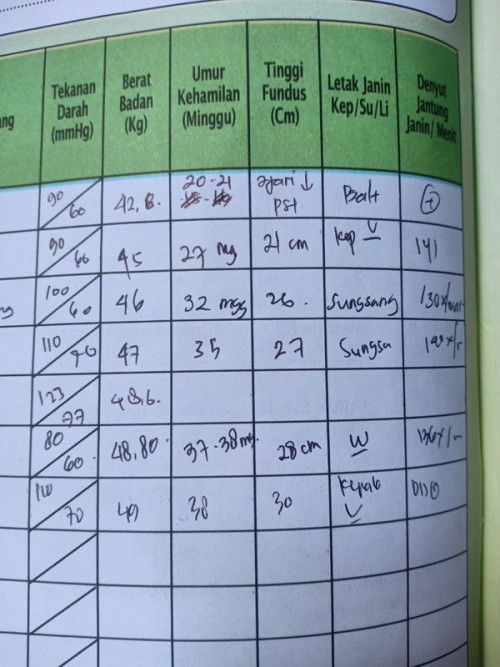 ang
Tekanan Darah (mmHg)
Berat Badan (Kg)
Umur Kehamilan (Minggu)
Tinggi Fundus (Cm)
Letak Janin Kep/Su/Li
Denyut Jantung Janin/ Menit
90/60 42,8. 20-21 2jari ↓ pst Ball +
90/60 45 27 mg 21 cm kep 141
100/60 46 32 mgg 26. Sungsang 130x/
110 47 35 27 Sungsa
123/77 48,6.
80/60. 48,80. 37-38 mg. 28 cm 136x/m
110/70 49 38 30 Kepala